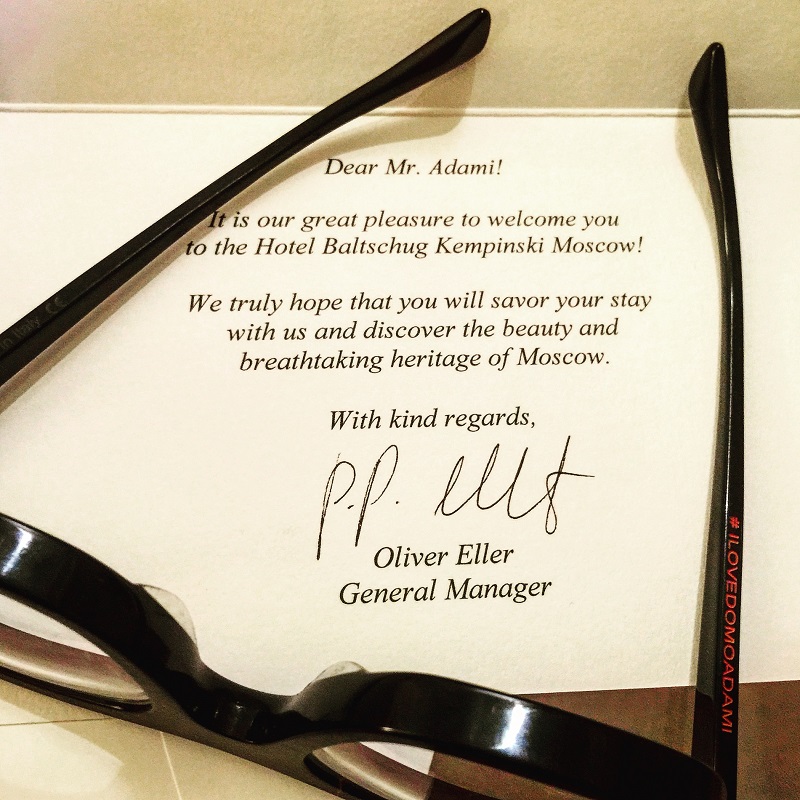 Dear Mr. Adami!
It is our great pleasure to welcome you
to the Hotel Baltschug Kempinski Moscow!
We truly hope that you will savor your stay
with us and discover the beauty and
breathtaking heritage of Moscow.
With kind regards,
p.p.
Oliver Eller
General Manager
in Italy CE
#ILOVEDOMOADAMI